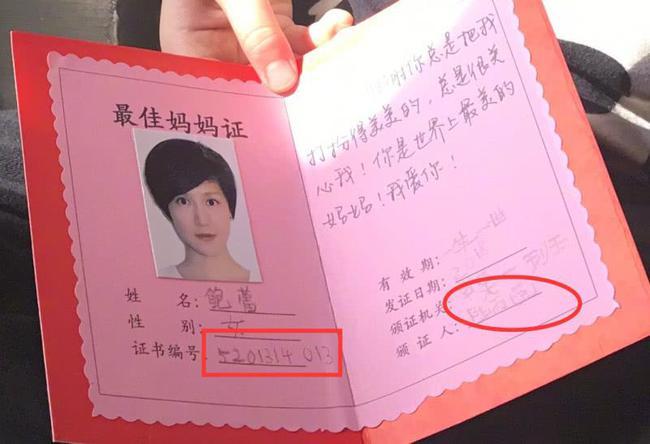 最佳妈妈证
姓 名：鲍蕾
性 别：女
证书编号：5201314 013
你总是把我
打扮得美美的，总是很关
心我！你是世界上最美的
妈妈！我爱你！
有效期：一生一世
发证日期：
颁证机关：
颁证人：